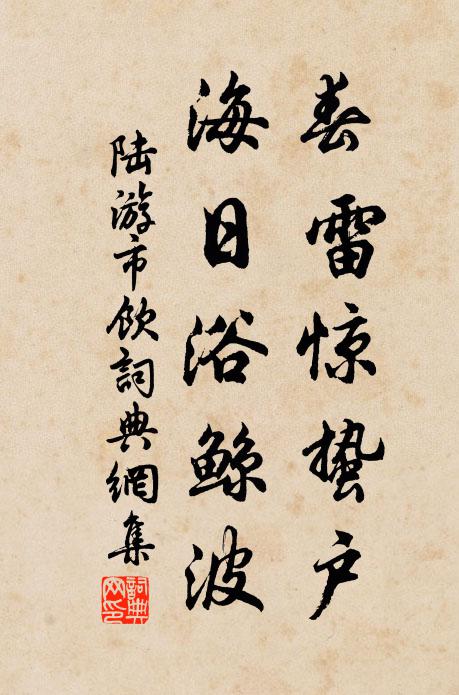 春雷惊蛰户
海日浴鲸波
陆游市饮詞典網集
詞典
网印